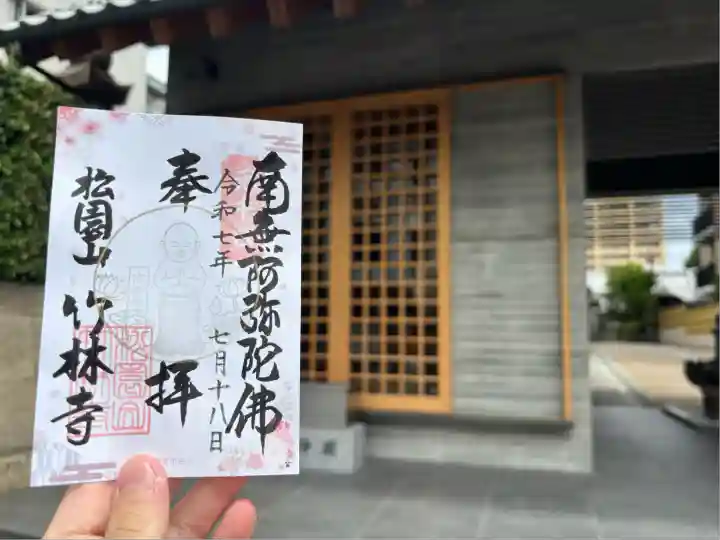 南無阿弥陀佛
令和七年 七月十八日
奉拝
松園山 竹林寺